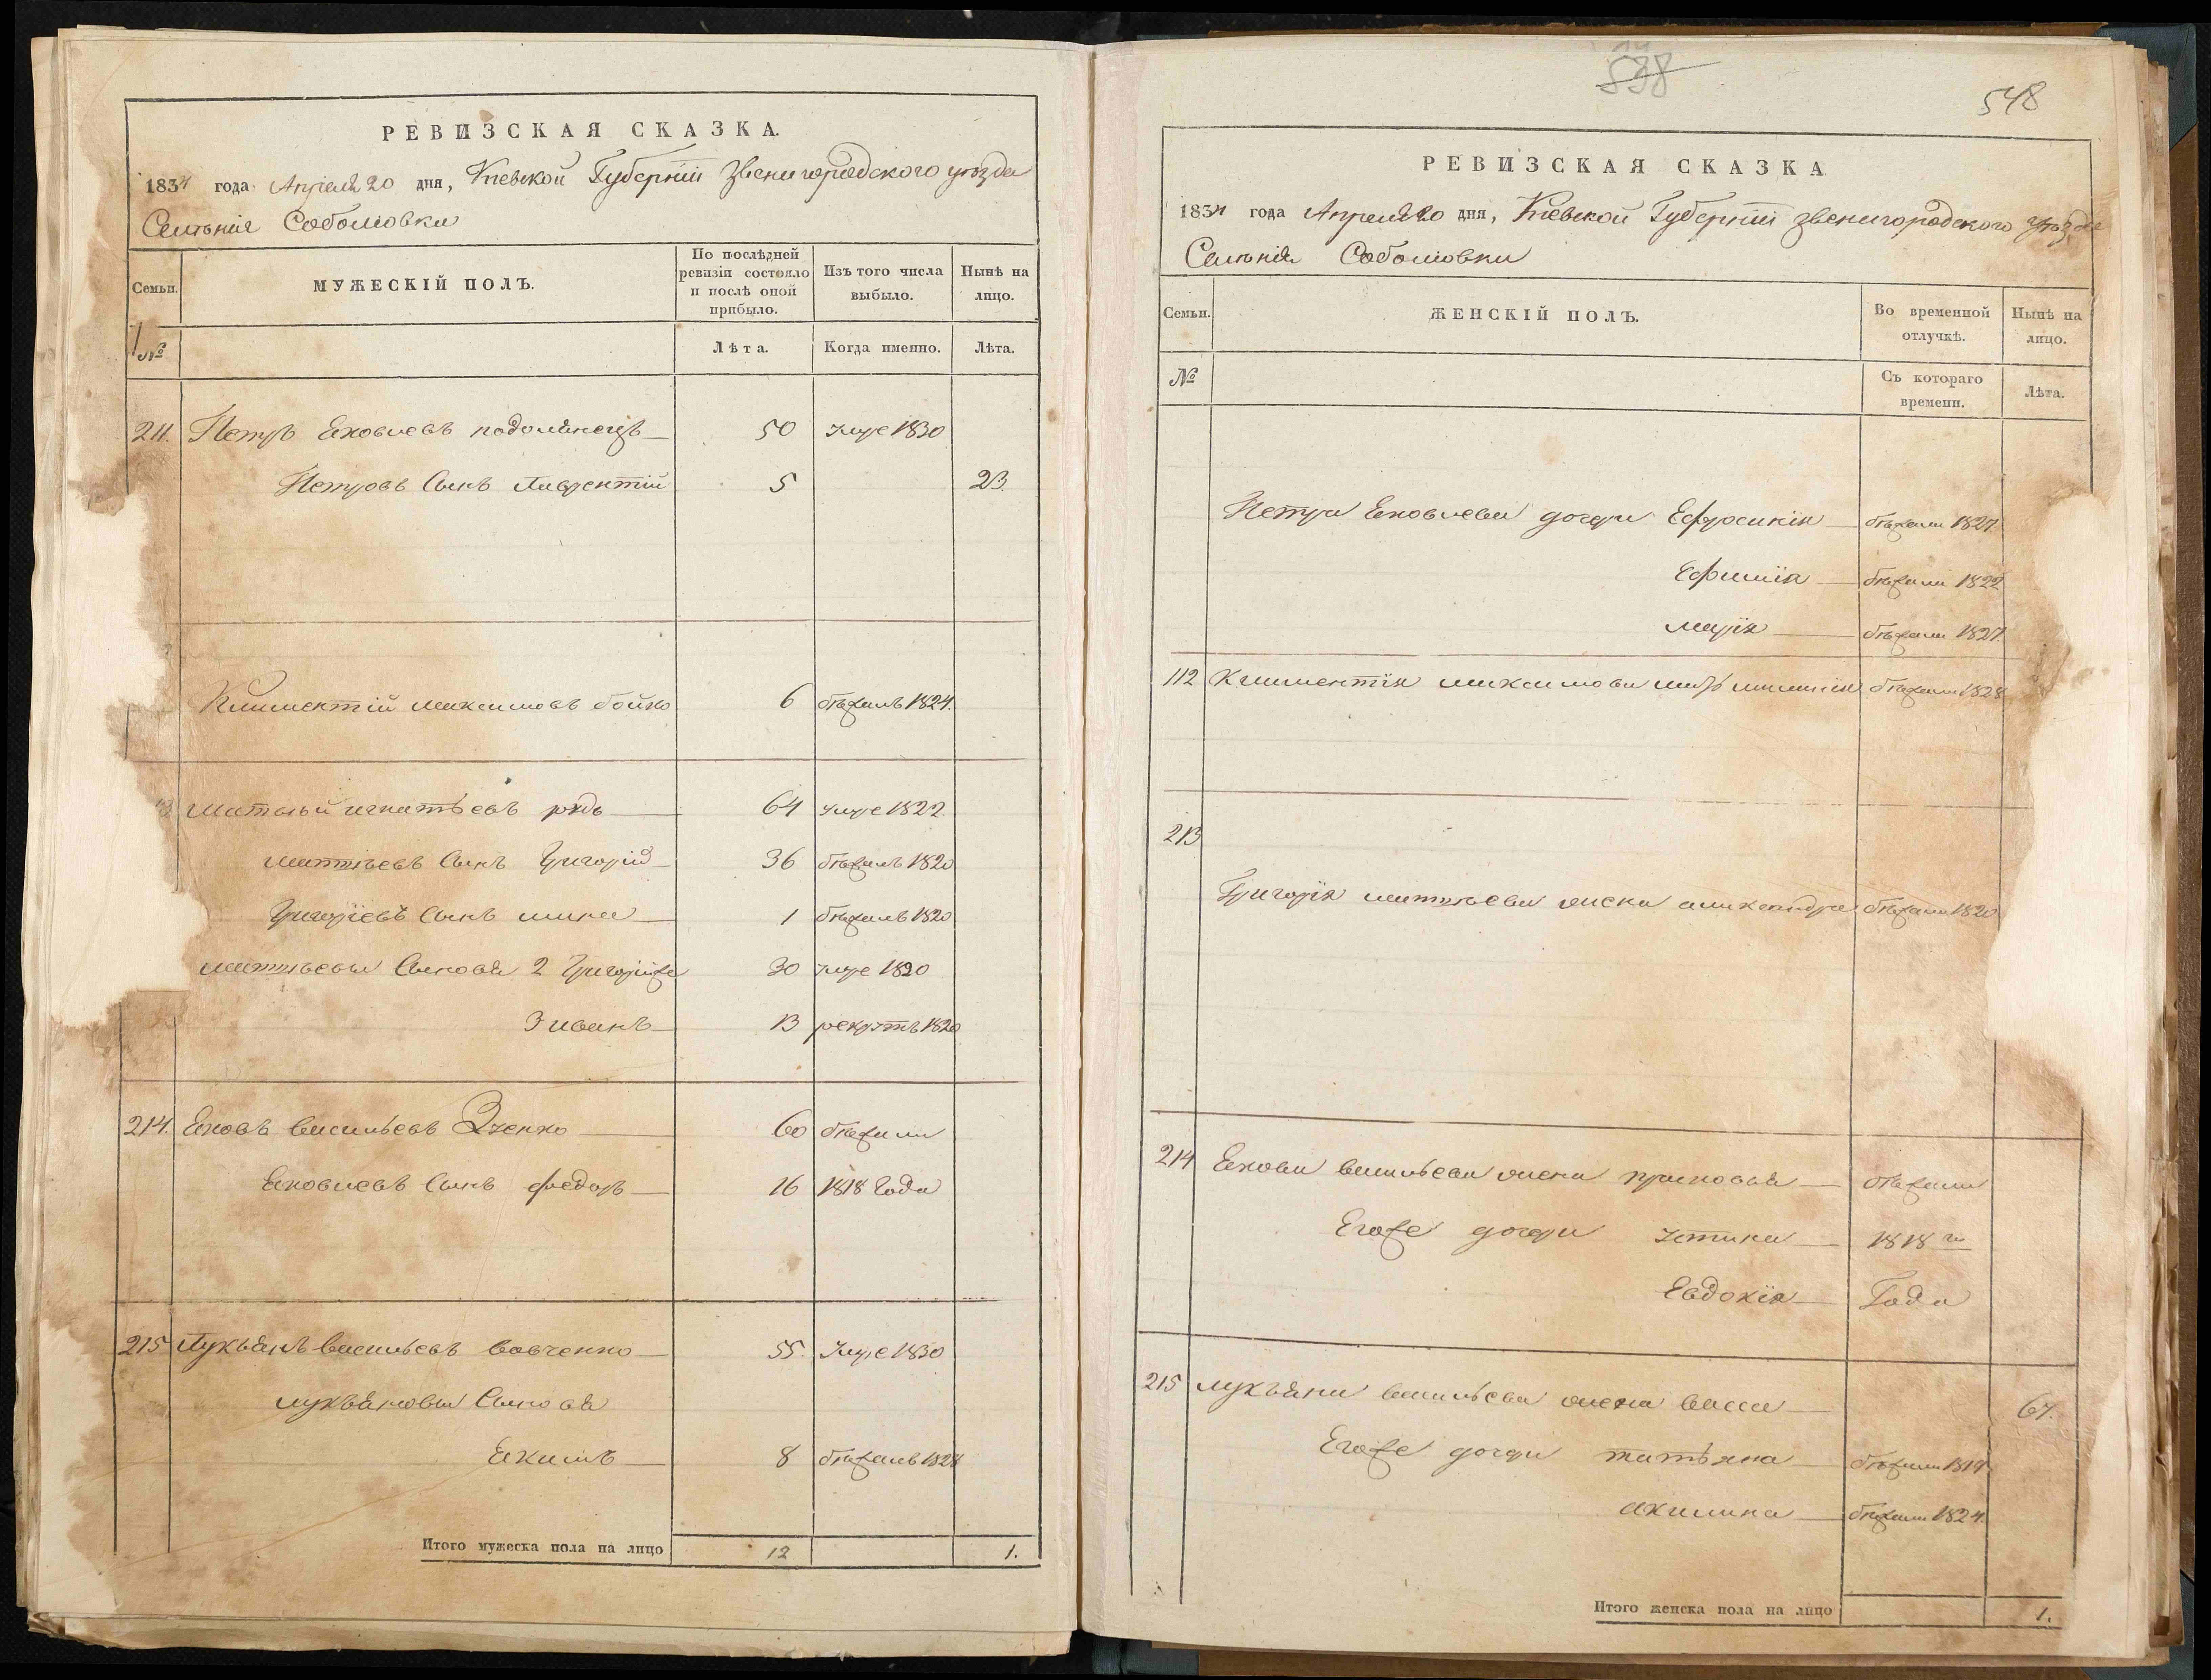 РЕВИЗСКАЯ СКАЗКА.
1834 года Апреля 20 дня, Киевской Губернїи Звенигородского уезда
Селения Соболювки
Семьи. МУЖЕСКІЙ ПОЛЪ. По послѣдней ревизіи состояло и послѣ оной прибыло. Изъ того числа выбыло. Нынѣ на лицо.
№ Лѣта. Когда именно. Лѣта.
211. Петръ Яковлевъ подолянецъ 50 умре 1830
Петровъ Сынъ Лаврентїй 5 23.
Климентїй максимовъ бойко 6 бѣжалъ 1824.
Матвей игнатьевъ 64 умре 1822.
матвѣевъ Сынъ Григорїй 36 бѣжалъ 1820
Григорїевъ Сынъ мина 1 бѣжалъ 1820
матвѣевы Сыновя 2 Григорїй же 30 умре 1820
3 иванъ 13 рекрутъ 1820
214. Яковъ васильевъ 60 бѣжали
Яковлевъ Сынъ федоръ 16 1818 Года
215 Лукьянъ васильевъ вовченко 55. Умре 1830
лукьяновы Сыновя
Якимъ 8 бѣжалъ 1824
Итого мужеска пола на лицо 12 1.
538
548
РЕВИЗСКАЯ СКАЗКА
1834 года Апреля 20 дня, Киевской Губернїи Звенигородского уезда
Селения Соболювки
Семьи. ЖЕНСКІЙ ПОЛЪ. Во временной отлучкѣ. Нынѣ на лицо.
№ Съ котораго времени. Лѣта.
Петра Яковлева дочери Ефросинїя бѣжали 1827.
Ефимїя бѣжали 1822
марїя бѣжали 1827.
112 Климентїя максимова бѣжали 1824
213
Григорїя матвѣева жена александра бѣжали 1820
214 Якова васильева жена прасковья бѣжали
Егоже дочери устина 1818 го
Евдокїя Года
215 лукьяна васильева жена васса 67.
Егоже дочери татьяна бѣжали 1819.
акилина бѣжали 1824.
Итого женска пола на лицо 1.